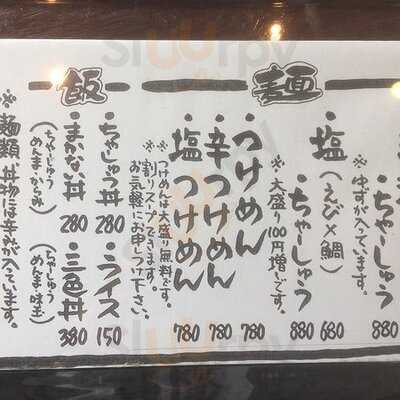 麺
ちゃーしゅう 880
※ゆずがへってます。
塩 680
(えび×鯛)
ちゃーしゅう 880
※大盛り100円増です。
つけめん 780
辛つけめん 780
塩つけめん 780
※つけめんは大盛り無料です。
※割りスープできます。
お気軽にお申しつけ下さい。
飯
ちゃしゅう丼 280
ライス 150
まかない丼 280
(ちゃーしゅう
めんま・からみ)
三色丼 380
(ちゃーしゅう
めんま・味玉)
※麺類、丼物には辛みがへっています。